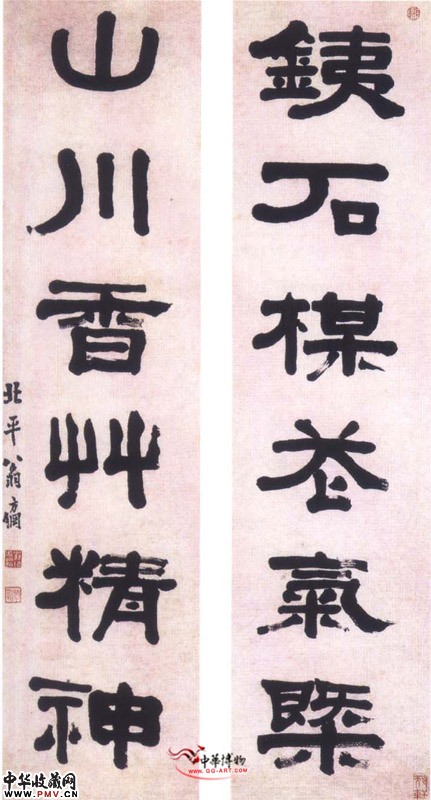 銕石楳花氣槩
山川香艸精神
北平翁方綱
中華博物
www.GG-ART.com
中华收藏网
www.PMV.CN